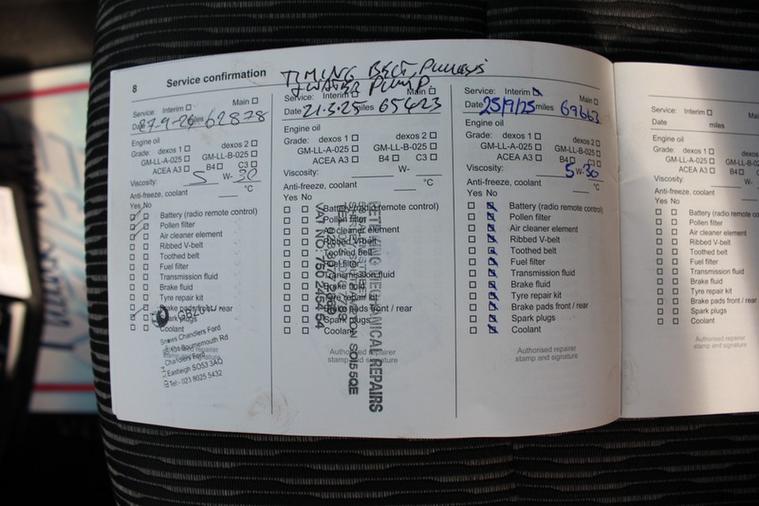 8 Service confirmation
TIMING BELT, PULLEYS
& WATER PUMP
Service: Interim Main
Date 27-9-24 miles 62878
Engine oil
Grade: dexos 1 dexos 2
GM-LL-A-025 GM-LL-B-025
ACEA A3 B4 C3
Viscosity: 5 W- 30
Anti-freeze, coolant °C
Yes No
Battery (radio remote control)
Pollen filter
Air cleaner element
Ribbed V-belt
Toothed belt
Fuel filter
Transmission fluid
Brake fluid
Tyre repair kit
Brake pads front / rear
Spark plugs
Coolant
Snows Chandlers Ford
Bournemouth Rd
Chandlers Ford
Eastleigh SO53 3AQ
Tel:- 023 8025 5432
Service: Interim Main
Date 21-3-25 miles 65423
Engine oil
Grade: dexos 1 dexos 2
GM-LL-A-025 GM-LL-B-025
ACEA A3 B4 C3
Viscosity: W-
Anti-freeze, coolant °C
Yes No
Battery (radio remote control)
Pollen filter
Air cleaner element
Ribbed V-belt
Toothed belt
Fuel filter
Transmission fluid
Brake fluid
Tyre repair kit
Brake pads front / rear
Spark plugs
Coolant
Authorised repairer
stamp and signature
MECHANICAL REPAIRS
SO15 5QE
VAT NO:
Service: Interim Main
Date 25/9/25 miles 69663
Engine oil
Grade: dexos 1 dexos 2
GM-LL-A-025 GM-LL-B-025
ACEA A3 B4 C3
Viscosity: 5 W- 30
Anti-freeze, coolant °C
Yes No
Battery (radio remote control)
Pollen filter
Air cleaner element
Ribbed V-belt
Toothed belt
Fuel filter
Transmission fluid
Brake fluid
Tyre repair kit
Brake pads front / rear
Spark plugs
Coolant
Authorised repairer
stamp and signature
Service: Interim
Date miles
Engine oil
Grade: dexos 1
GM-LL-A-025
ACEA A3
Viscosity:
Anti-freeze, coolant
Yes No
Battery (radio remote
Pollen filter
Air cleaner element
Ribbed V-belt
Toothed belt
Fuel filter
Transmission fluid
Brake fluid
Tyre repair kit
Brake pads front / rear
Spark plugs
Coolant
Authorised repairer
stamp and signature